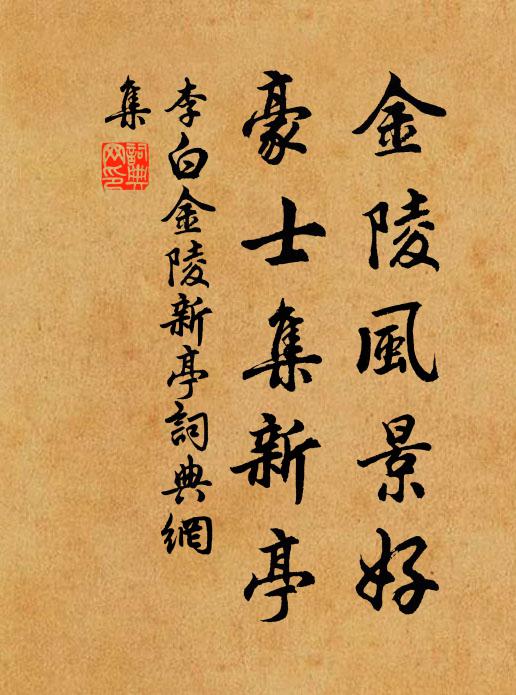 金陵風景好
豪士集新亭
李白金陵新亭詞典網
集
詞典網印